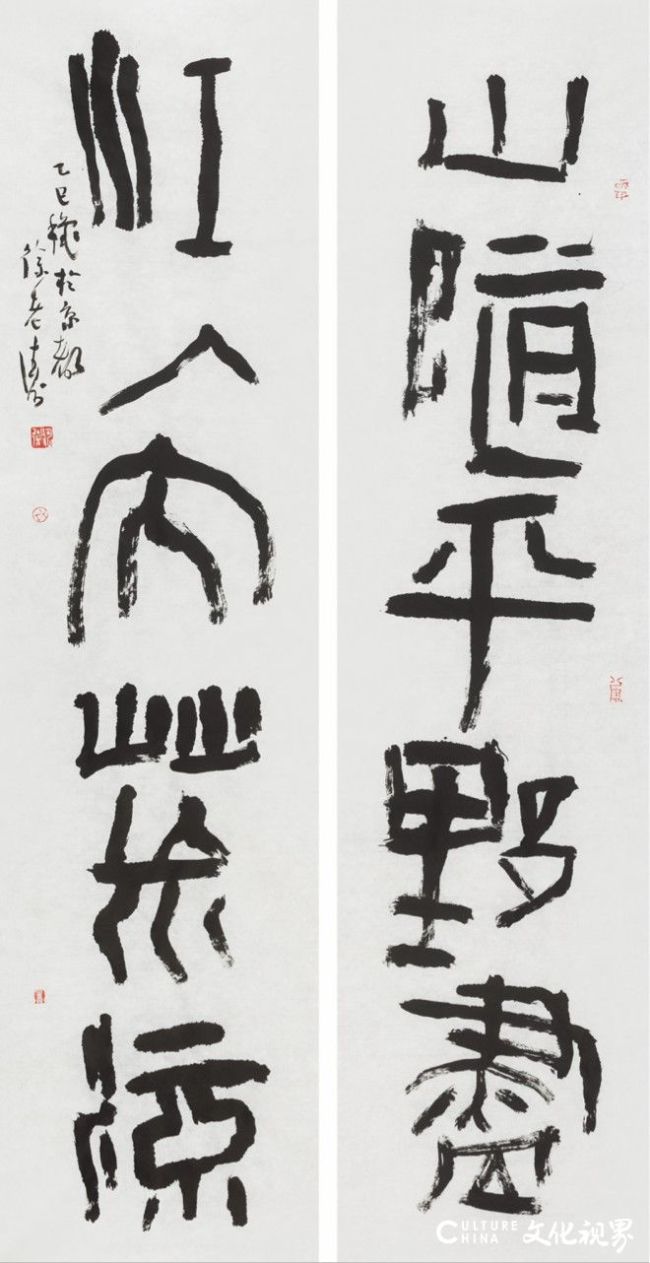 山隨平野盡
江入大荒流
乙巳 於京都
CULTURE
CHINA 文化视界